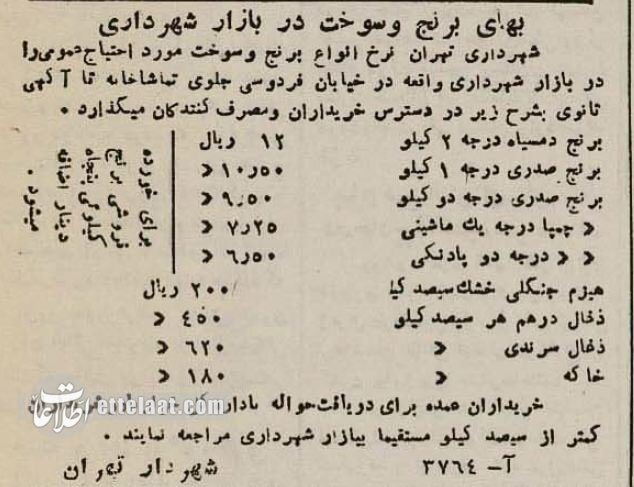 بهای برنج وسوخت در بازار شهرداری
شهرداری تهران نرخ انواع برنج وسوخت مورد احتیاج عمومی را
در بازار شهرداری واقعه در خیابان فردوسی جلوی تماشاخانه تا آگهی
ثانوی بشرح زیر در دسترس خریداران ومصرف کنندگان میگذارد .
برنج دمسیاه درجه ۲ کیلو ۱۲ ریال
برنج صدری درجه ۱ کیلو ۱۰٫۵۰ »
برنج صدری درجه دو کیلو ۹٫۵۰ »
» چمپا درجه یك ماشینی ۷٫۲۵ »
» » درجه دو پادنگی ۶٫۵۰ »
برای خورده
فروشی برنج
کیلوئی پنجاه
دینار اضافه
میشود .
هیزم جنگلی خشك سیصد کیا ۲۰۰ ریال
ذغال درهم هر سیصد کیلو ۴۵۰ »
ذغال سرندی » ۶۲۰ »
خاکه » ۱۸۰ »
خریداران عمده برای دریافت حواله
کمتر از سیصد کیلو مستقیما ببازار شهرداری مراجعه نمایند .
آ- ۳۷۶۴ شهردار تهران
اطلاعات ettelaat.com